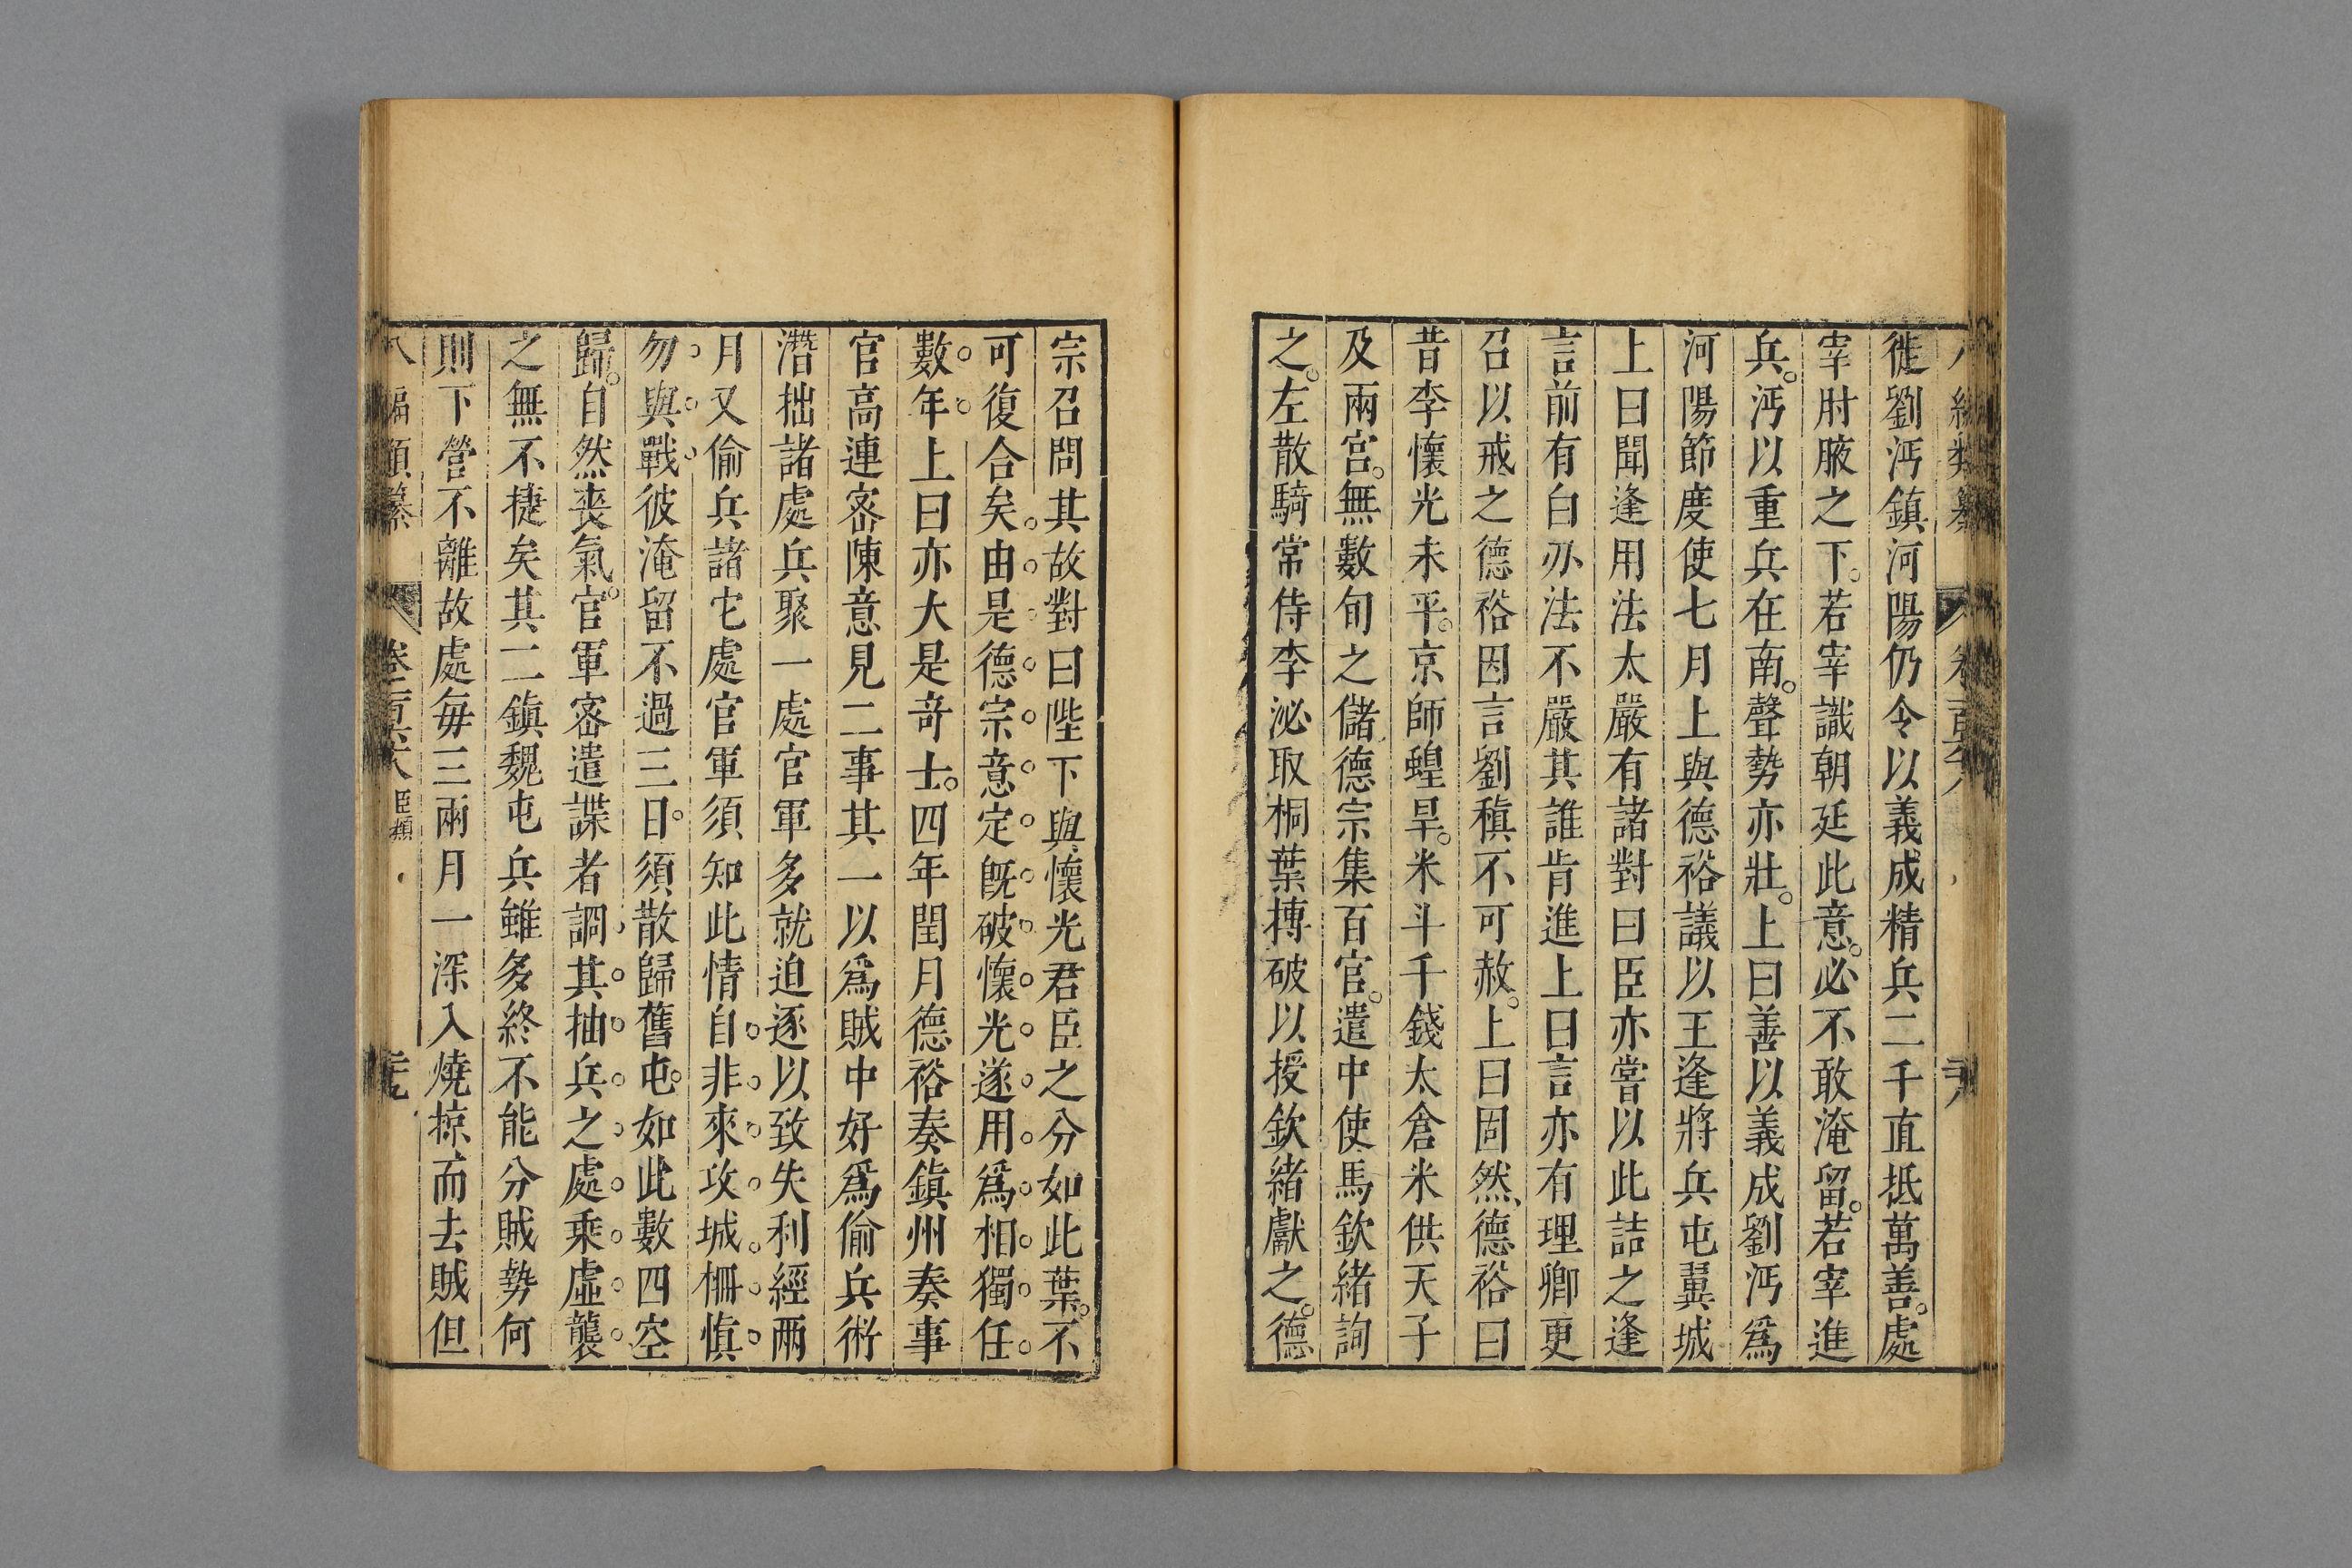 徙劉沔鎮河陽仍令以義成精兵二千直抵萬善處
宰肘腋之下若宰識朝廷此意必不敢淹留若宰進
兵沔以重兵在南聲勢亦壯上曰善以義成劉沔爲
河陽節度使七月上與德裕議以王逢將兵屯翼城
上曰聞逢用法太嚴有諸對曰臣亦嘗以此詰之逢
言前有白刃法不嚴其誰肯進上曰言亦有理卿更
召以戒之德裕因言劉稹不可赦上曰固然德裕曰
昔李懷光未平京師蝗旱米斗千錢太倉米供天子
及兩宮無數旬之儲德宗集百官遣中使馬欽緒詢
之左散騎常侍李泌取桐葉摶破以授欽緒獻之德
宗召問其故對曰陛下與懷光君臣之分如此葉不
可復合矣由是德宗意定既破懷光遂用爲相獨任
數年上曰亦大是奇士四年閏月德裕奏鎭州奏事
官高連密陳意見二事其一以爲賊中好爲偷兵術
潛拙諸處兵聚一處官軍多就迫逐以致失利經兩
月又偷兵諸它處官軍須知此情自非來攻城柵慎
勿與戰彼淹留不過三日須散歸舊屯如此數四空
歸自然喪氣官軍密遣諜者詗其抽兵之處乘虛襲
之無不捷矣其二鎭魏屯兵雖多終不能分賊勢何
則下營不離故處每三兩月一深入燒掠而去賊但
八編類纂 卷二百六八 臣類